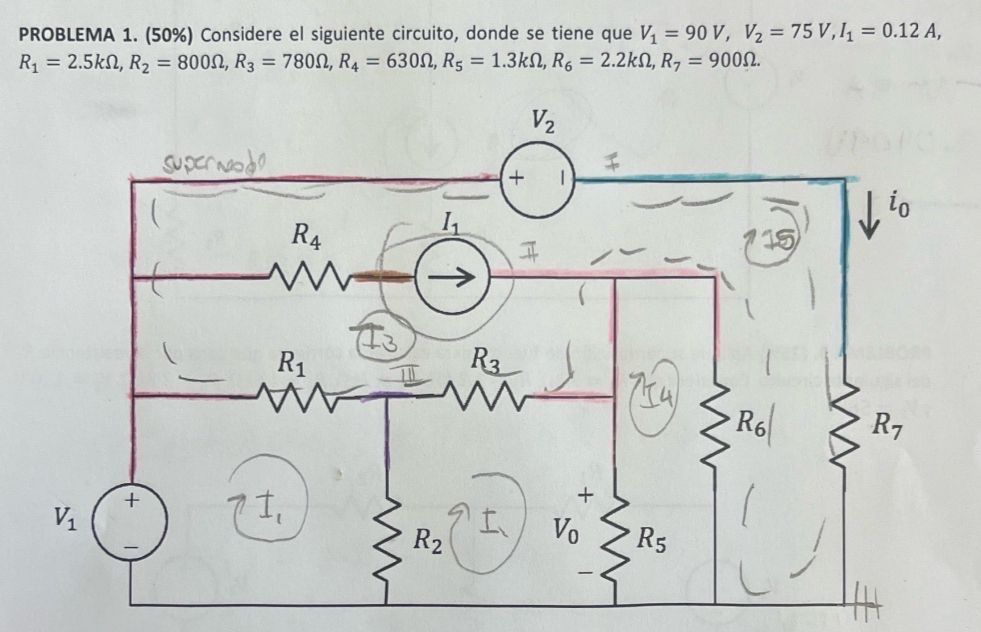 PROBLEMA 1. (50%) Considere el siguiente circuito, donde se tiene que V₁ = 90 V, V₂ = 75 V, I₁ = 0.12 A,
R₁ = 2.5kΩ, R₂ = 800Ω, R₃ = 780Ω, R₄ = 630Ω, R₅ = 1.3kΩ, R₆ = 2.2kΩ, R₇ = 900Ω.
V₂
supernodo
I
+ −
i₀
R₄
I₁
II
I5
I3
R₁
III
R₃
I4
R₆
R₇
V₁
+
−
I₁
R₂
I
V₀
+
−
R₅